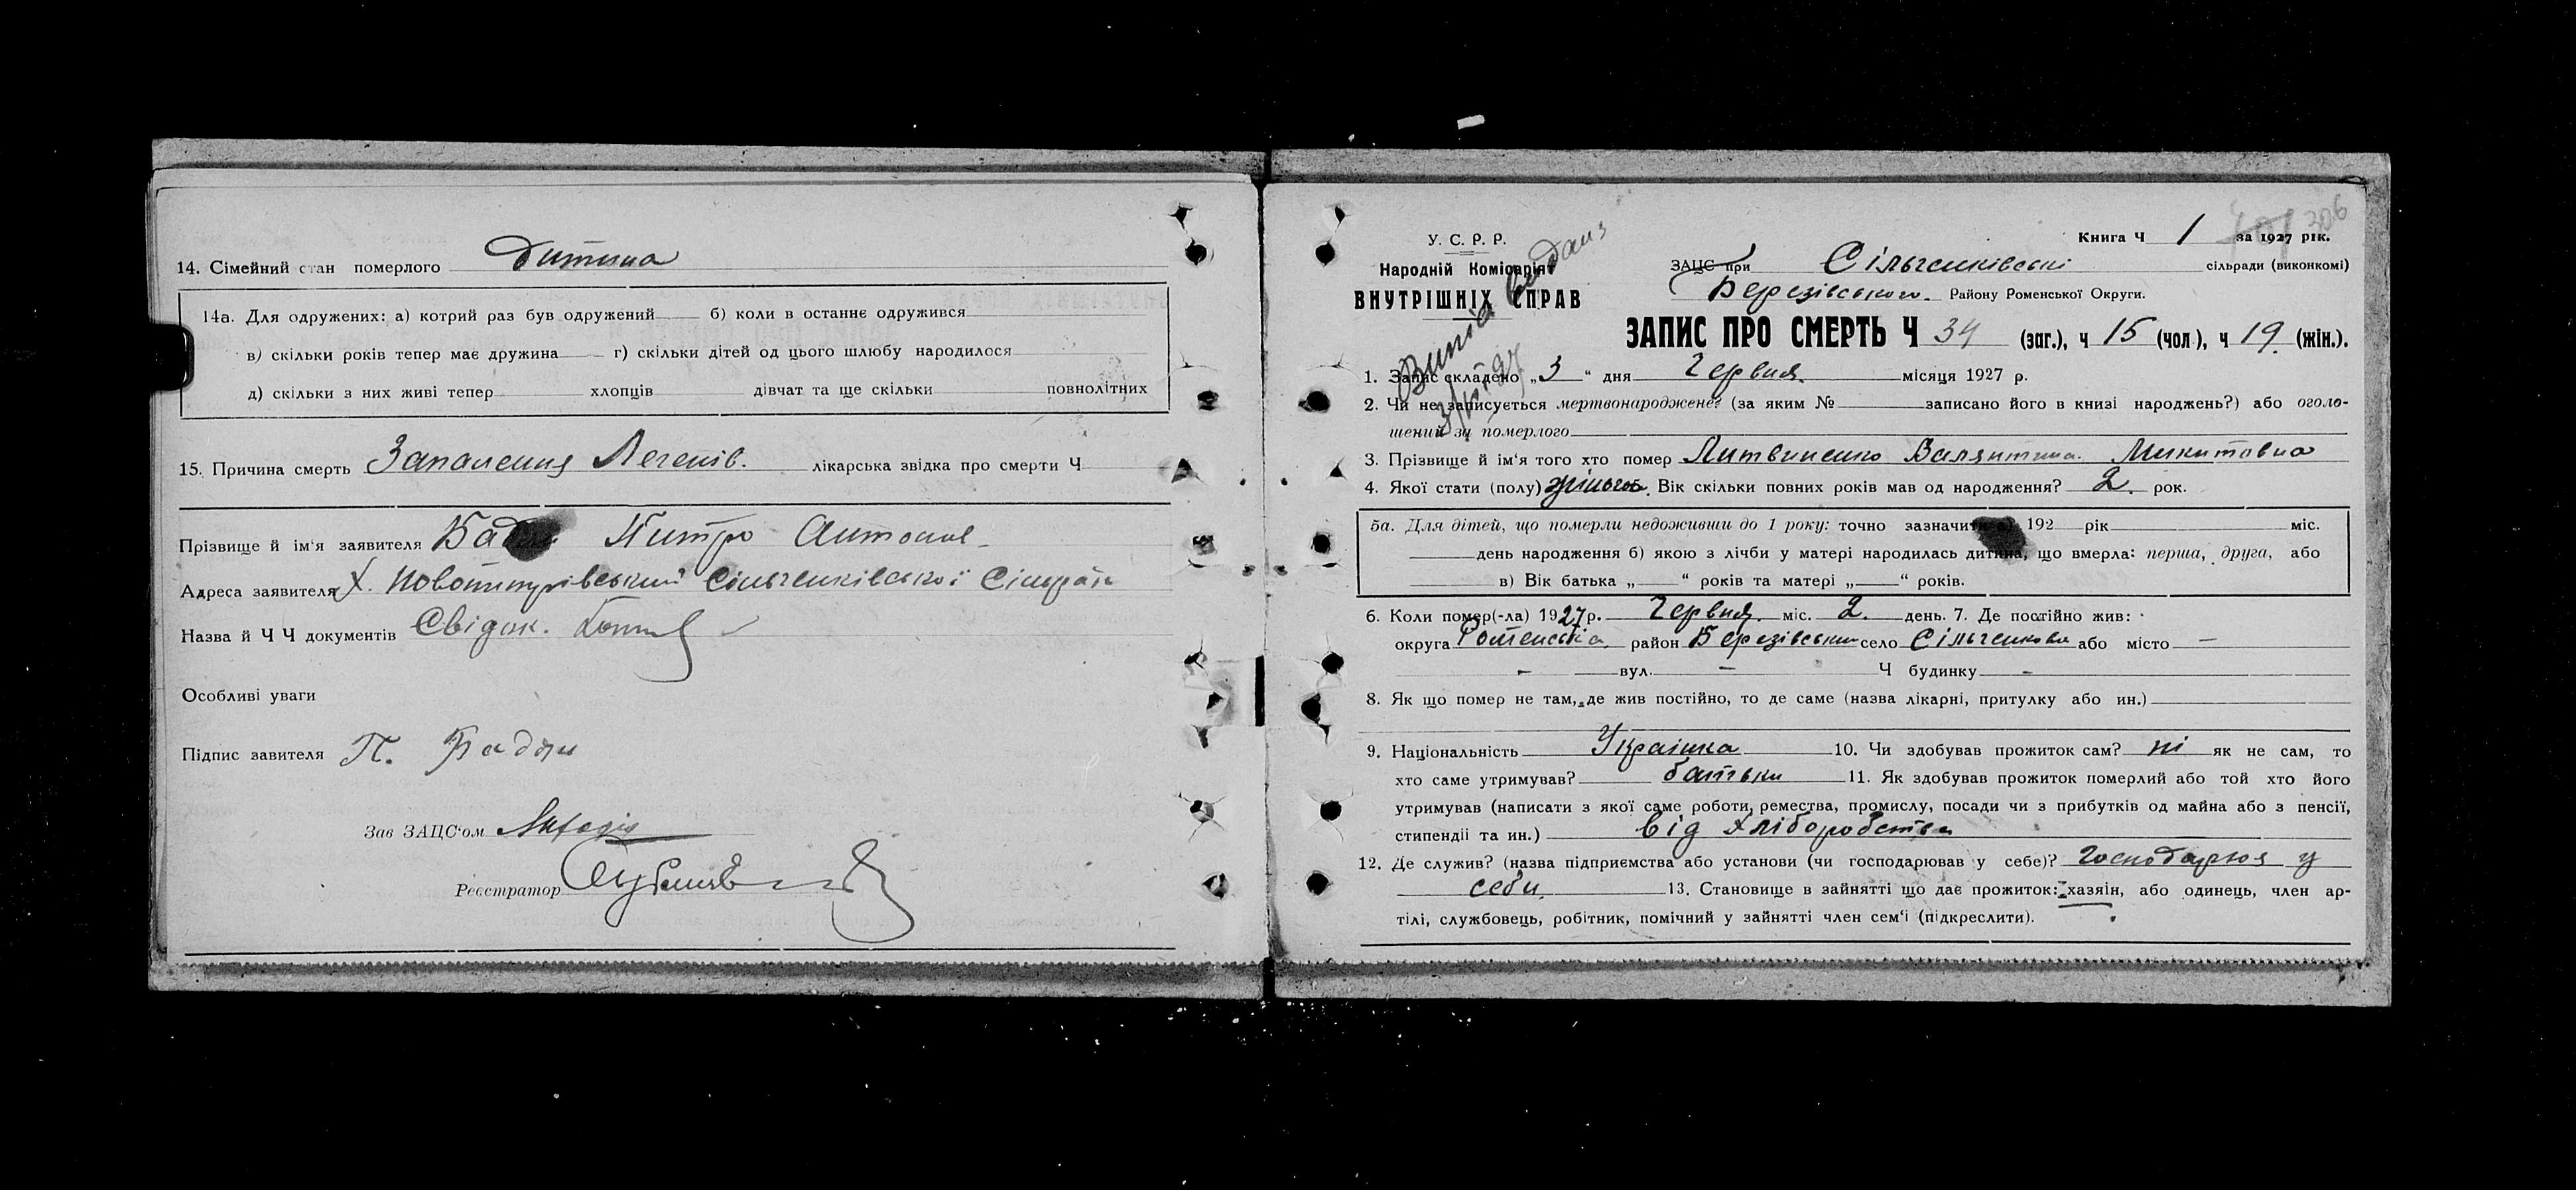 14. Сімейний стан померлого Дитина
14а. Для одружених: а) котрий раз був одружений б) коли в останнє одружився
в) скільки років тепер має дружина г) скільки дітей од цього шлюбу народилося
д) скільки з них живі тепер хлопців дівчат та ще скільки повнолітних
15. Причина смерть Запалення Легенів. лікарська звідка про смерти Ч
Прізвище й ім'я заявителя Антонов
Адреса заявителя х. Сільченківської Сільради
Назва й Ч Ч документів Свідок.
Особливі уваги
Підпис завителя П.
Зав ЗАЦС'ом
Реєстратор
У. С. Р. Р.
Народній Комісаріят
ВНУТРІШНІХ СПРАВ
Випис видано
Книга Ч 1 за 1927 рік.
306
ЗАЦС при Сільченківські сільради (виконкомі)
Березівського Району Роменської Округи.
ЗАПИС ПРО СМЕРТЬ Ч 34 (заг.), ч 15 (чол), ч 19. (жін.).
1. Запис складено „3“ дня Червня місяця 1927 р.
2. Чи не записується мертвонароджене? (за яким № записано його в книзі народжень?) або оголо-
шений за померлого
3. Прізвище й ім'я того хто помер Литвиненко Валянтина Микитовна
4. Якої стати (полу) жіночоі. Вік скільки повних років мав од народження? 2. рок.
5а. Для дітей, що померли недоживши до 1 року: точно 192 рік міс.
день народження б) якою з лічби у матері народилась дитина, що вмерла: перша, друга, або
в) Вік батька „ “ років та матері „ “ років.
6. Коли помер(-ла) 1927 р. Червня міс. 2. день. 7. Де постійно жив:
округа Роменська район Березівський село Сільченкове або місто –
– вул. – Ч будинку –
8. Як що помер не там, де жив постійно, то де саме (назва лікарні, притулку або ин.)
9. Національність Українка 10. Чи здобував прожиток сам? ні як не сам, то
хто саме утримував? батьки 11. Як здобував прожиток померлий або той хто його
утримував (написати з якої саме роботи, ремества, промислу, посади чи з прибутків од майна або з пенсії,
стипендії та ин.) від хліборобства
12. Де служив? (назва підприємства або установи (чи господарював у себе)? господарюя у
себи 13. Становище в зайнятті що дає прожиток: хазяін, або одинець, член ар-
тілі, службовець, робітник, помічний у зайнятті член сем'ї (підкреслити).